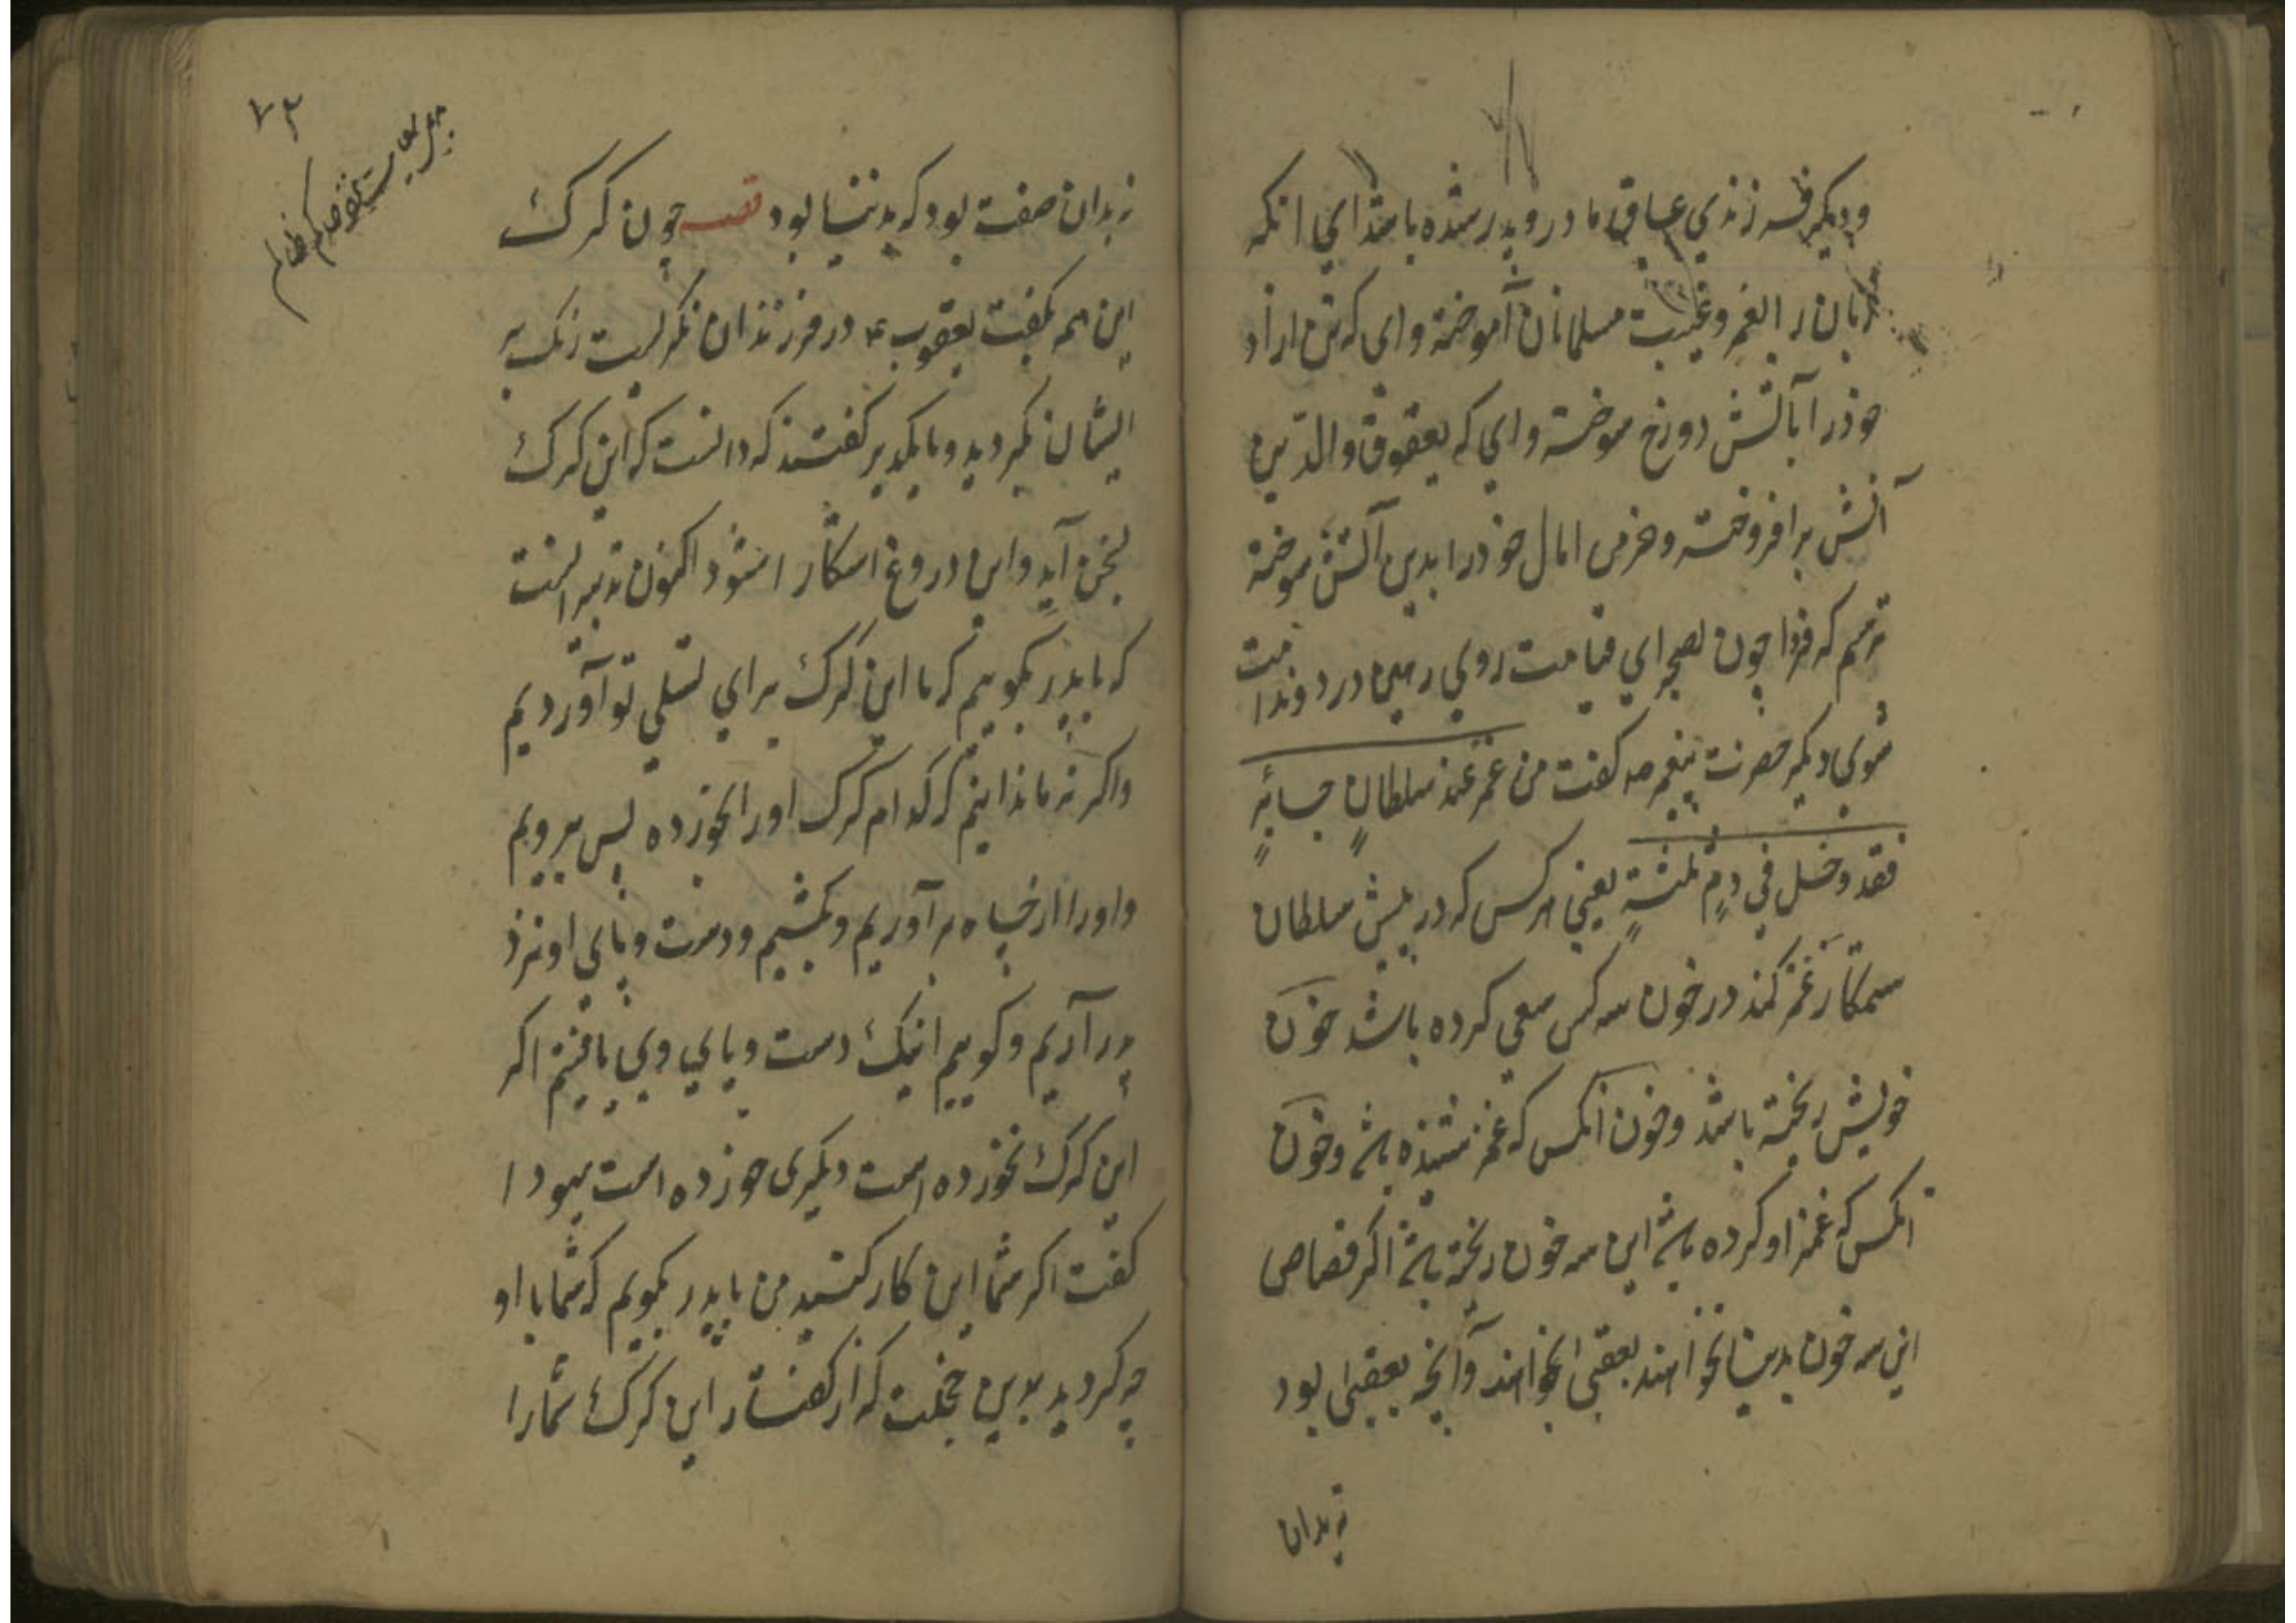 ودیکر فرزندی عاق مادر و پدر شده باشد ای انکه
زبان را بغمز و غیبت مسلمانان آموخته وای که تن ازاد
خوذ را باتش دوزخ سوخته وای که بعقوق والدین
آتش برافروخته و خرمن امال خوذ را بدین آتش سوخته
ترسم که فردا چون بصحرای قیامت روی رهین درد و ندامت
شوی دیکر حضرت پیغمبر صه کفت من غمز عند سلطانٍ جایرٍ
فقد دخل فی دمِ ثلثةٍ یعنی هر کس که در پیش سلطان
ستمکار غمز کند در خون سه کس سعی کرده باشد خون
خویش ریخته باشد وخون انکس که غمز شنیذه باشد وخون
انکس که غمز او کرده باشد این سه خون ریخته باشد اکر قصاص
این سه خون بدنیا نخواهند بعقبی بخواهند وآنچه بعقبی بود
نه بدان
٧٣
نه بدان صفت بود که بدنیا بود قصه چون کرک
این همه بکفت یعقوب ع در فرزندان نکریست رنک بر
ایشان بکردید و بایکدیکر کفتند که دانست که این کرک
بسخن آید و این دروغ اشکارا شوذ اکنون تدبیر انست
که با پدر بکوییم که ما این کرک برای تسلی تو آوردیم
واکر نه ما ندانیم که کدام کرک اورا بخوزده پس برویم
واورا از چاه برآوریم و بکشیم و دست و پای او نزد
پدر آریم و کوییم اینک دست و پای وی یافتیم اکر
این کرک نخوزده است دیکری خوزده است یهودا
کفت اکر شما این کار کنید من با پدر بکویم که شما با او
چه کردید بدین خجلت که از کفتار این کرک شمارا